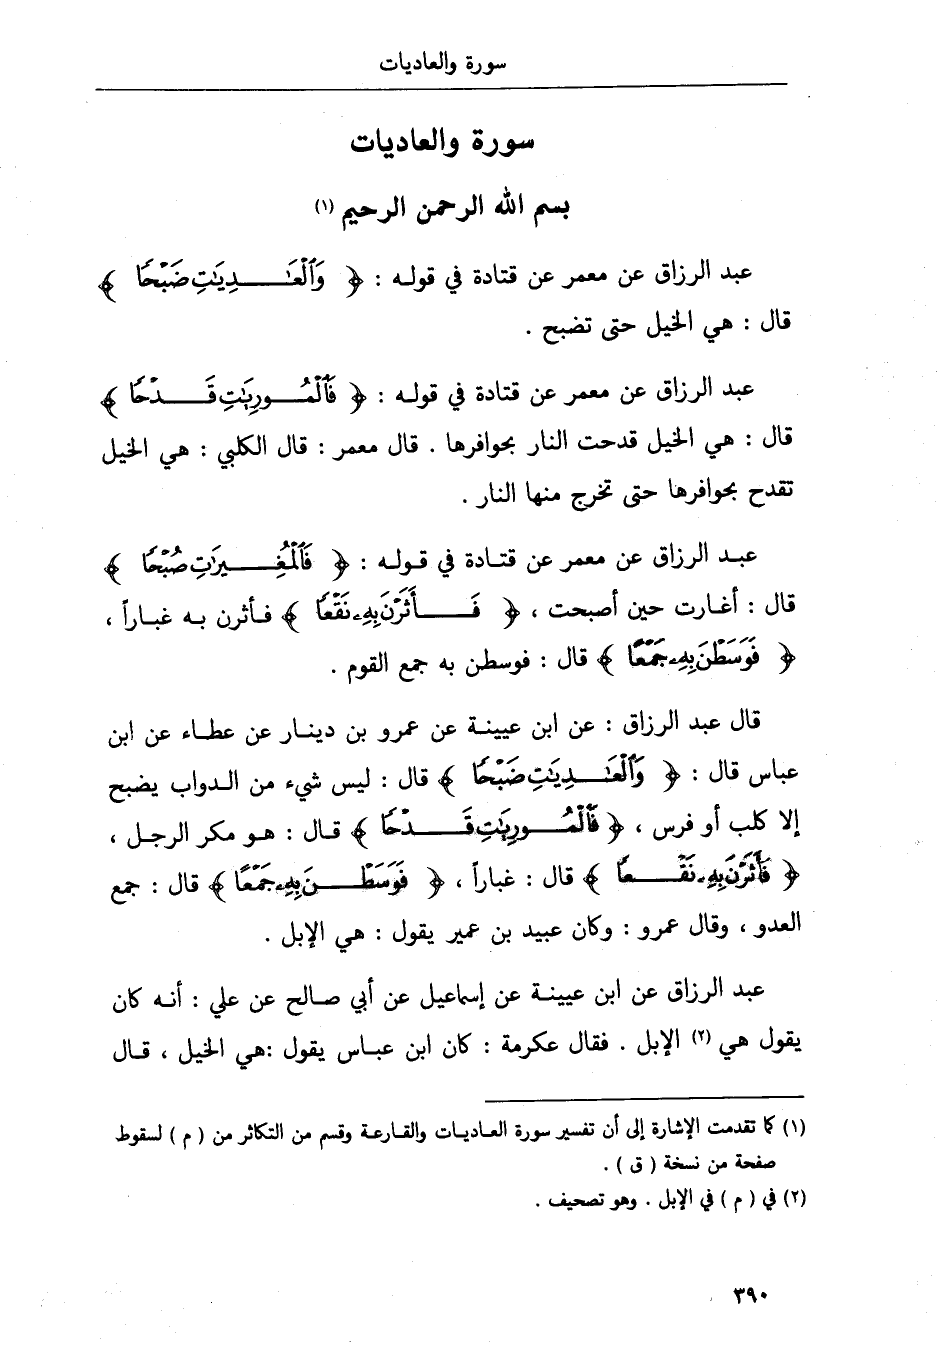 سورة والعاديات
سورة والعاديات
بسم الله الرحمن الرحيم (١)
عبد الرزاق عن معمر عن قتادة في قولـه : ﴿ وَٱلْعَـٰدِيَـٰتِ ضَبْحًا ﴾
قال : هي الخيل حتى تضبح .
عبد الرزاق عن معمر عن قتادة في قولـه : ﴿ فَٱلْمُورِيَـٰتِ قَدْحًا ﴾
قال : هي الخيل قدحت النار بحوافرها . قال معمر : قال الكلبي : هي الخيل
تقدح بحوافرها حتى تخرج منها النار .
عبـد الرزاق عن معمر عن قتـادة في قـولـه : ﴿ فَٱلْمُغِيرَٰتِ صُبْحًا ﴾
قال : أغـارت حين أصبحت ، ﴿ فَأَثَرْنَ بِهِۦ نَقْعًا ﴾ فـأثرن بـه غبـاراً ،
﴿ فَوَسَطْنَ بِهِۦ جَمْعًا ﴾ قال : فوسطن به جمع القوم .
قال عبد الرزاق : عن ابن عيينـة عن عمرو بن دينـار عن عطـاء عن ابن
عباس قال : ﴿ وَٱلْعَـٰدِيَـٰتِ ضَبْحًا ﴾ قال : ليس شيء من الـدواب يضبح
إلا كلب أو فرس ، ﴿ فَٱلْمُورِيَـٰتِ قَدْحًا ﴾ قـال : هـو مكر الرجـل ،
﴿ فَأَثَرْنَ بِهِۦ نَقْعًا ﴾ قال : غباراً ، ﴿ فَوَسَطْنَ بِهِۦ جَمْعًا ﴾ قال : جمع
العدو ، وقال عمرو : وكان عبيد بن عمير يقول : هي الإبل .
عبد الرزاق عن ابن عيينـة عن إسماعيل عن أبي صـالح عن علي : أنـه كان
يقول هي (٢) الإبل . فقال عكرمة : كان ابن عبـاس يقول :هي الخيل ، قـال
(١) كما تقدمت الإشارة إلى أن تفسير سورة العـاديـات والقـارعـة وقسم من التكاثر من ( م ) لسقوط
صفحة من نسخة ( ق ) .
(٢) في ( م ) في الإبل . وهو تصحيف .
٣٩٠